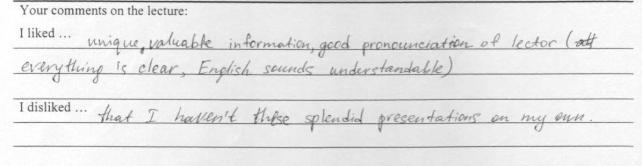 Your comments on the lecture:
I liked ... unique, valuable information, good pronounciation of lector (
everything is clear, English sounds understandable)
I disliked ... that I haven't these splendid presentations on my own.